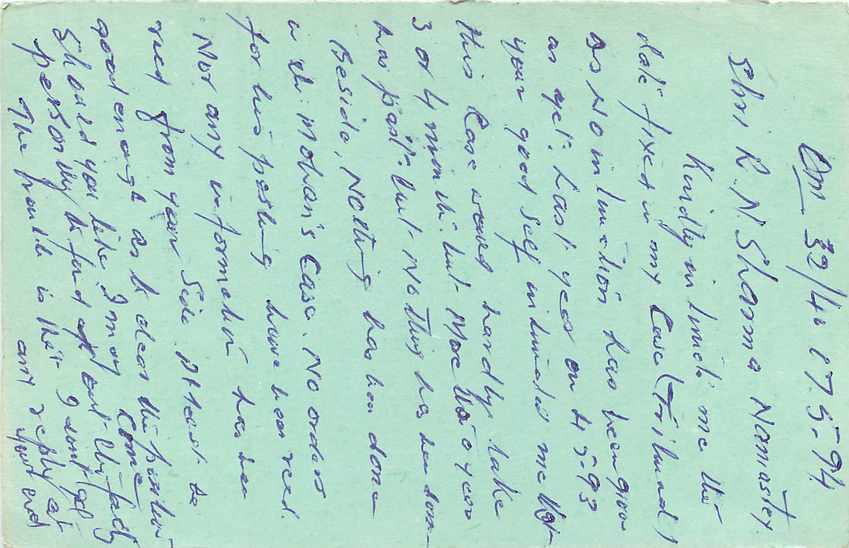 Om 32/4 17.5-94
Shri R. N. Sharma Namastey.
Kindly intimate me the
date fixed in my Case (Tribunal)
as No intimation has been given
as yet. Last year on 4-5-93
your good self intimated me that
this Case would hardly take
3 or 4 months. but More than a year
has past but Nothing has been done
Beside, Nothing has been done
in Sh. Mohan's Case. No orders
for his posting have been recd.
Nor any information has been
recd from your side. Atleast be
good enough as to clear the position
Should you like I may come
personally to find out the facts
The trouble is that I dont get
any reply at your end